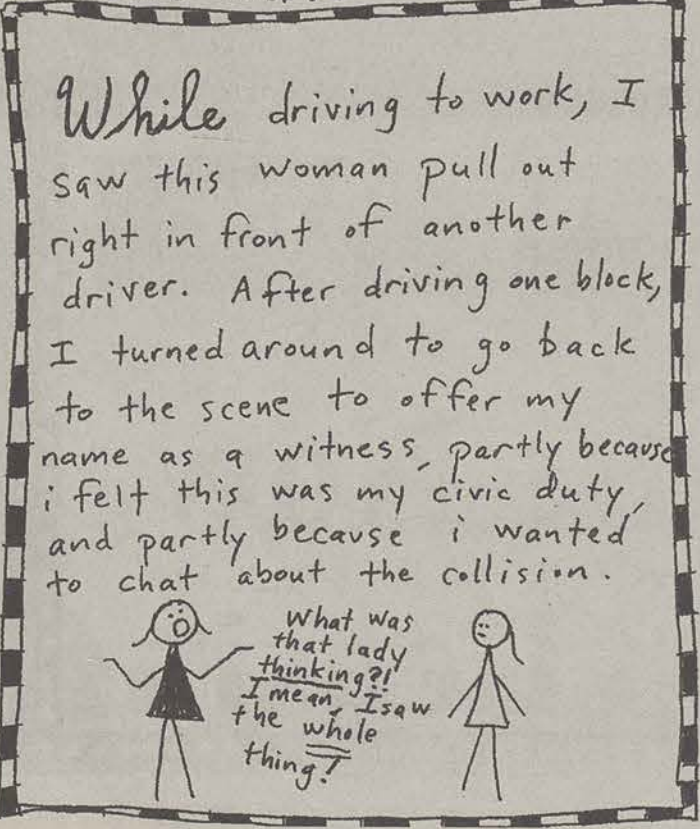 While driving to work, I
saw this woman pull out
right in front of another
driver. After driving one block,
I turned around to go back
to the scene to offer my
name as a witness, partly because
i felt this was my civic duty,
and partly because i wanted
to chat about the collision.
What was
that lady
thinking?!
I mean, I saw
the whole
thing!